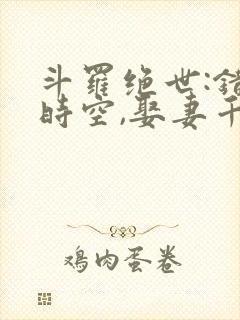 斗羅绝世:錯
時空,娶妻千
鸡肉蛋卷